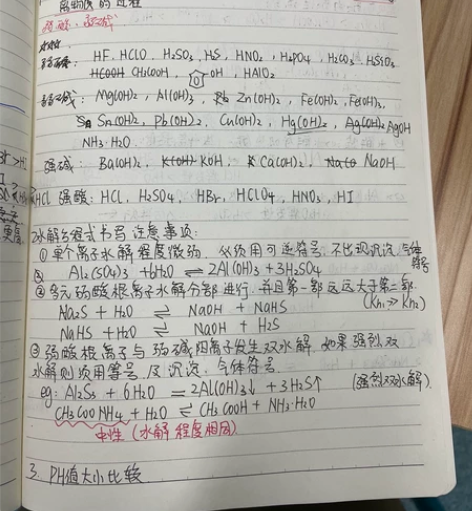 离的过程
弱酸、弱碱
弱酸: HF、HClO、H₂SO₃、HS、HNO₂、H₃PO₄、H₂CO₃、H₂SiO₃
HCOOH CH₃COOH、OH、HAlO₂
弱碱: Mg(OH)₂、Al(OH)₃、Zn(OH)₂、Fe(OH)₂、Fe(OH)₃、
Sn(OH)₂、Pb(OH)₂、Cu(OH)₂、Hg(OH)₂、Ag(OH)₂ AgOH
NH₃·H₂O
强碱: Ba(OH)₂、K(OH) KOH、Ca(OH)₂、NaOH
强酸: HCl、H₂SO₄、HBr、HClO₄、HNO₃、HI
水解方程式书写注意事项:
① 单个离子水解程度微弱,必须用可逆符号,不出现沉淀、气体符号
Al₂(SO₄)₃ + 6H₂O ⇌ 2Al(OH)₃ + 3H₂SO₄
② 多元弱酸根离子水解分部进行,并且第一部远远大于第二部
Na₂S + H₂O ⇌ NaOH + NaHS (Kh₁ ≫ Kh₂)
NaHS + H₂O ⇌ NaOH + H₂S
③ 弱酸根离子与弱碱阳离子发生双水解,如果强烈双
水解则须用等号及沉淀、气体符号
eg: Al₂S₃ + 6H₂O = 2Al(OH)₃↓ + 3H₂S↑ (强烈双水解)
CH₃COONH₄ + H₂O ⇌ CH₃COOH + NH₃·H₂O
中性(水解程度相同)
3. PH值大小比较